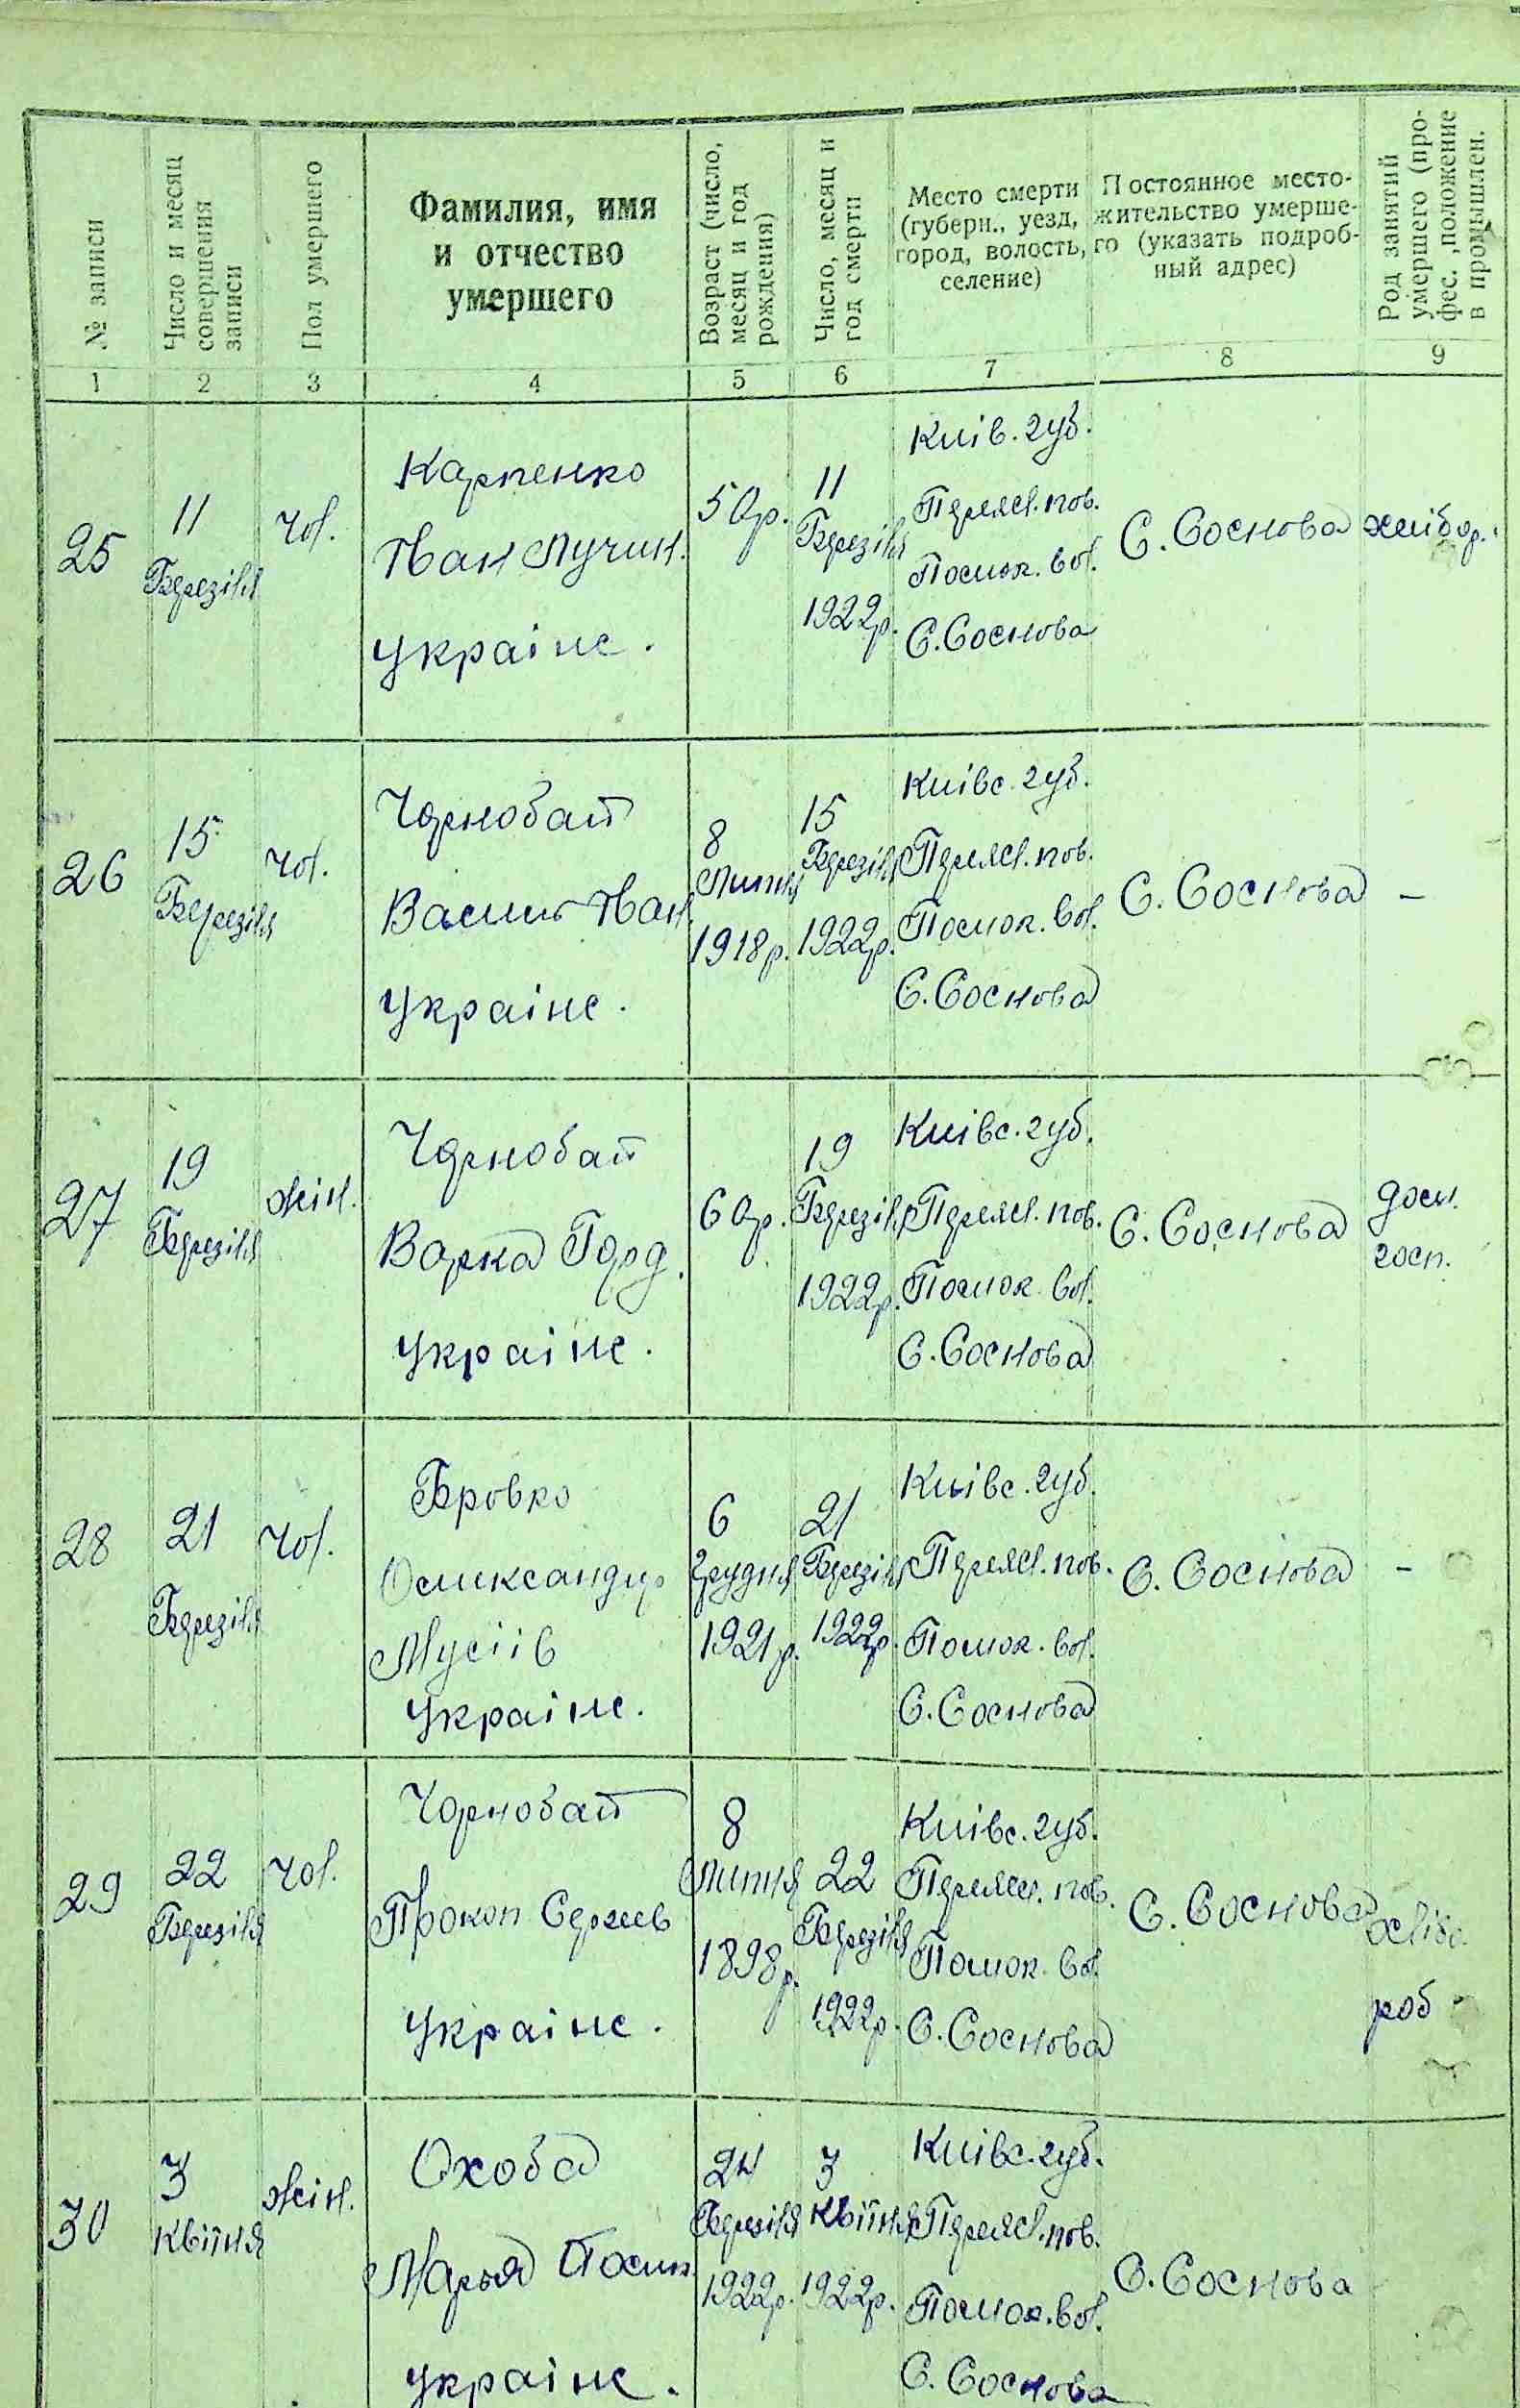 № записи
Число и месяц
совершения
записи
Пол умершего
Фамилия, имя
и отчество
умершего
Возраст (число,
месяц и год
рождения)
Число, месяц и
год смерти
Место смерти
(губерн., уезд,
город, волость,
селение)
Постоянное место-
жительство умерше-
го (указать подроб-
ный адрес)
Род занятий
умершего (про-
фес., положение
в промышлен.
1 2 3 4 5 6 7 8 9
25
11
Березіля
чол.
Карпенко
Іван Лучин.
україне.
50р.
11
Березіля
1922р.
Київ. губ.
Переясл. пов.
Помок. вол.
С. Соснова
С. Соснова
хлібор.
26
15
Березіля
чол.
Чорнобай
Василь Іван.
україне.
8
Липня
1918р.
15
Березіля
1922р.
Київс. губ.
Переясл. пов.
Помок. вол.
С. Соснова
С. Соснова
-
27
19
Березіля
жін.
Чорнобай
Варка Горд.
україне.
60р.
19
Березіля
1922р.
Київс. губ.
Переясл. пов.
Помок. вол.
С. Соснова
С. Соснова
дом.
госп.
28
21
Березіля
чол.
Бровко
Олександр
Мусіїв
україне.
6
грудня
1921р.
21
Березіля
1922р.
Київс. губ.
Переясл. пов.
Помок. вол.
С. Соснова
С. Соснова
-
29
22
Березіля
чол.
Чорнобай
Прокоп Сергеев
україне.
8
липня
1898р.
22
Березіля
1922р.
Київс. губ.
Переясл. пов.
Помок. вол.
С. Соснова
С. Соснова
хлібо.
роб
30
3
Квітня
жін.
Охоба
Марья
україне.
24
Березіля
1922р.
3
Квітня
1922р.
Київс. губ.
Переясл. пов.
Помок. вол.
С. Соснова
С. Соснова